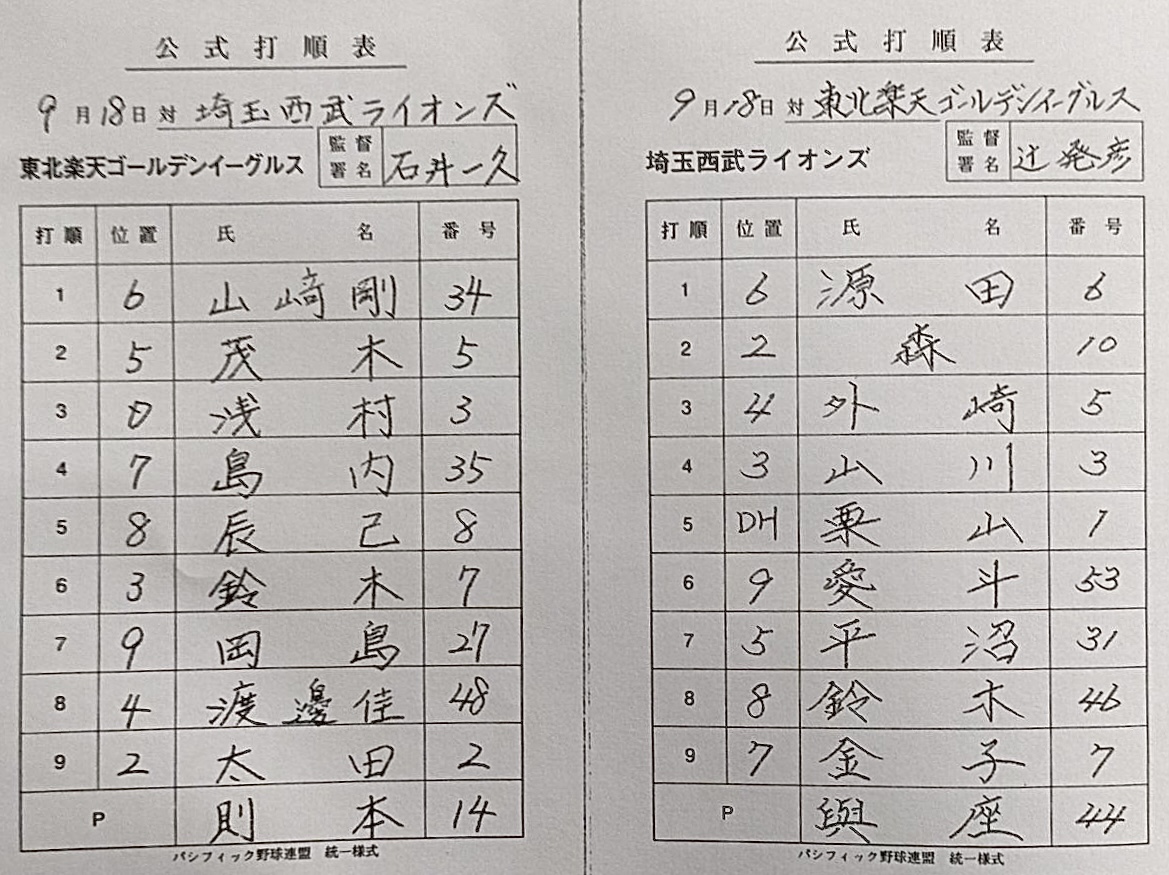 公式打順表
9月18日対 埼玉西武ライオンズ
東北楽天ゴールデンイーグルス 監督署名 石井一久
打順 位置 氏名 番号
1 6 山﨑剛 34
2 5 茂木 5
3 0 浅村 3
4 7 島内 35
5 8 辰己 8
6 3 鈴木 7
7 9 岡島 27
8 4 渡邊佳 48
9 2 太田 2
P 則本 14
パシフィック野球連盟 統一様式
公式打順表
9月18日対 東北楽天ゴールデンイーグルス
埼玉西武ライオンズ 監督署名 辻発彦
打順 位置 氏名 番号
1 6 源田 6
2 2 森 10
3 4 外崎 5
4 3 山川 3
5 DH 栗山 1
6 9 愛斗 53
7 5 平沼 31
8 8 鈴木 46
9 7 金子 7
P 與座 44
パシフィック野球連盟 統一様式